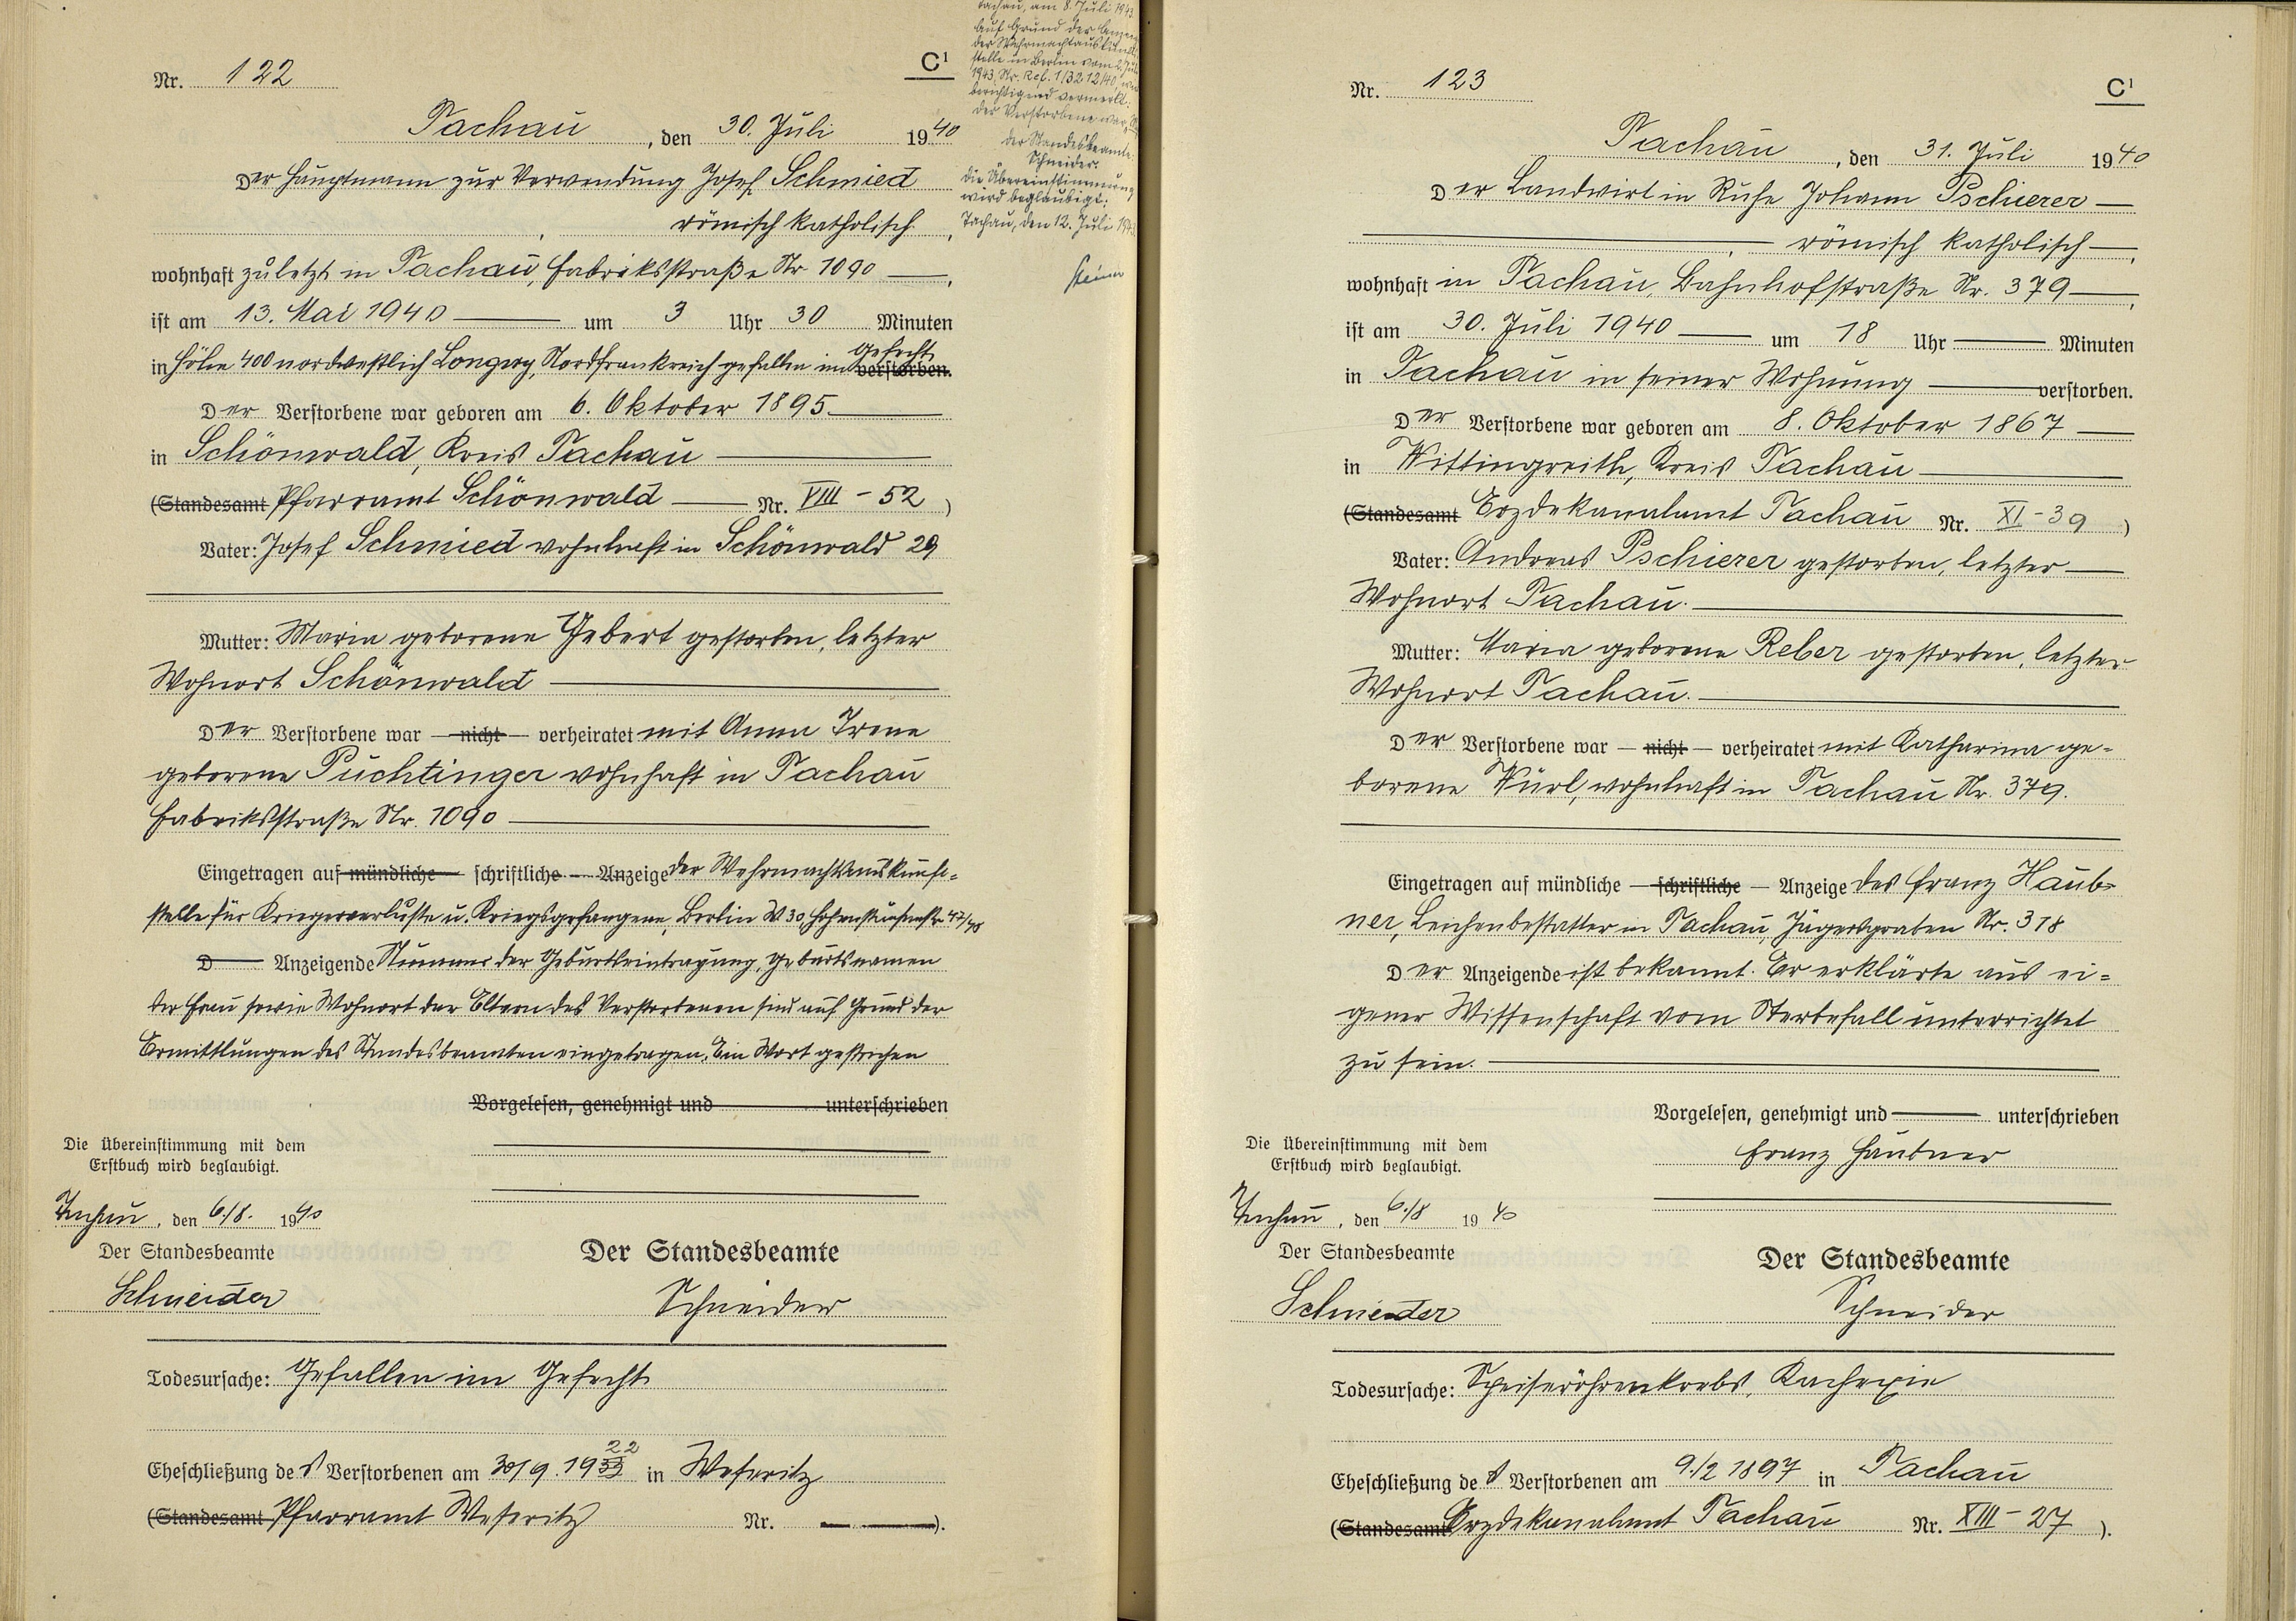 Nr. 122
C¹
Tachau, den 30. Juli 1940
Der Hauptmann zur Verwendung Josef Schmied
römisch katholisch,
wohnhaft zuletzt in Tachau, Fabriksstraße Nr. 1090,
ist am 13. Mai 1940 um 3 Uhr 30 Minuten
in Höhe 400 nordwestlich Longwy, Nordfrankreich gefallen im Gefecht verstorben.
Der Verstorbene war geboren am 6. Oktober 1895
in Schönwald, Kreis Tachau
(Standesamt Pfarramt Schönwald Nr. VIII - 52)
Vater: Josef Schmied wohnhaft in Schönwald 29
Mutter: Maria geborene Gebert gestorben, letzter
Wohnort Schönwald
Der Verstorbene war — nicht — verheiratet mit Anna Irene
geborene Puchtinger wohnhaft in Tachau
Fabriksstraße Nr. 1090
Eingetragen auf mündliche schriftliche Anzeige der Wehrmachtauskunft-
stelle für Kriegerverluste u. Kriegsgefangene, Berlin W 30, Hohenstaufenstr. 47/48
D Anzeigende Nummer der Geburtseintragung, Geburtsnamen
der Frau sowie Wohnort der Eltern des Verstorbenen sind auf Grund der
Ermittlungen des Standesbeamten eingetragen. Ein Wort gestrichen
Vorgelesen, genehmigt und unterschrieben
Die Übereinstimmung mit dem
Erstbuch wird beglaubigt.
Tachau, den 6./8. 1940
Der Standesbeamte
Schneider
Der Standesbeamte
Schneider
Todesursache: Gefallen im Gefecht
Eheschließung des Verstorbenen am 30/9. 1933 22 in Weseritz
(Standesamt Pfarramt Weseritz Nr. ).
Tachau, am 8. Juli 1943.
Auf Grund der
der Wehrmachtauskunft-
stelle in Berlin vom
1943, Nr. Ref. 1/3212/40,
berichtigend vermerkt:
der Verstorbene war
Der Standesbeamte:
Schneider.
Die Übereinstimmung
wird beglaubigt:
Tachau, den 12. Juli
Nr. 123
C¹
Tachau, den 31. Juli 1940
Der Landwirt in Ruhe Johann Pschierer
, römisch katholisch,
wohnhaft in Tachau, Bahnhofstraße Nr. 379,
ist am 30. Juli 1940 um 18 Uhr Minuten
in Tachau in seiner Wohnung verstorben.
Der Verstorbene war geboren am 8. Oktober 1867
in Wittingreith, Kreis Tachau
(Standesamt Erzdekanalamt Tachau Nr. XI - 39)
Vater: Andreas Pschierer gestorben, letzter
Wohnort Tachau.
Mutter: Maria geborene Reber gestorben, letzter
Wohnort Tachau.
Der Verstorbene war — nicht — verheiratet mit Katharina ge-
borene Würl, wohnhaft in Tachau Nr. 379.
Eingetragen auf mündliche — schriftliche — Anzeige des Franz Haub-
ner, Leichenbestatter in Tachau, Jägersgraben Nr. 318
Der Anzeigende ist bekannt. Er erklärte aus ei-
gener Wissenschaft vom Sterbefall unterrichtet
zu sein.
Vorgelesen, genehmigt und unterschrieben
Franz Haubner
Die Übereinstimmung mit dem
Erstbuch wird beglaubigt.
Tachau, den 6./8 1940
Der Standesbeamte
Schneider
Der Standesbeamte
Schneider
Todesursache: Speiseröhrenkrebs, Kachexie
Eheschließung des Verstorbenen am 9./2 1897 in Tachau
(Standesamt Erzdekanalamt Tachau Nr. XIII - 27).